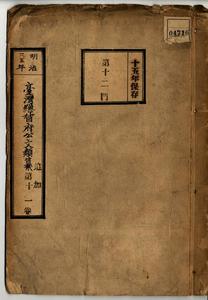 04716
十五年保存
第十二門
明治
三五年
臺灣總督府公文類纂
追加
第十一卷